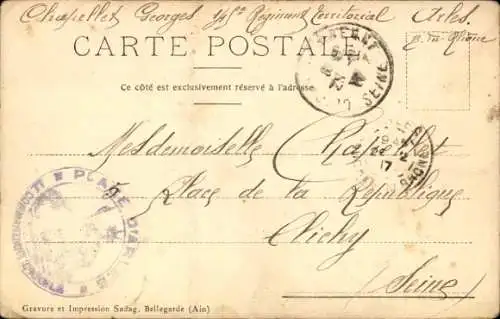 Chapellet Georges 145e Régiment Territorial Arles.
B. du Rhône
CARTE POSTALE
Ce côté est exclusivement réservé à l'adresse
SEINE
17
RHONE
PLACE D'ARLES
Mesdemoiselles Chapellet
Place de la République
Clichy
Seine
Gravure et Impression Sadag. Bellegarde (Ain)